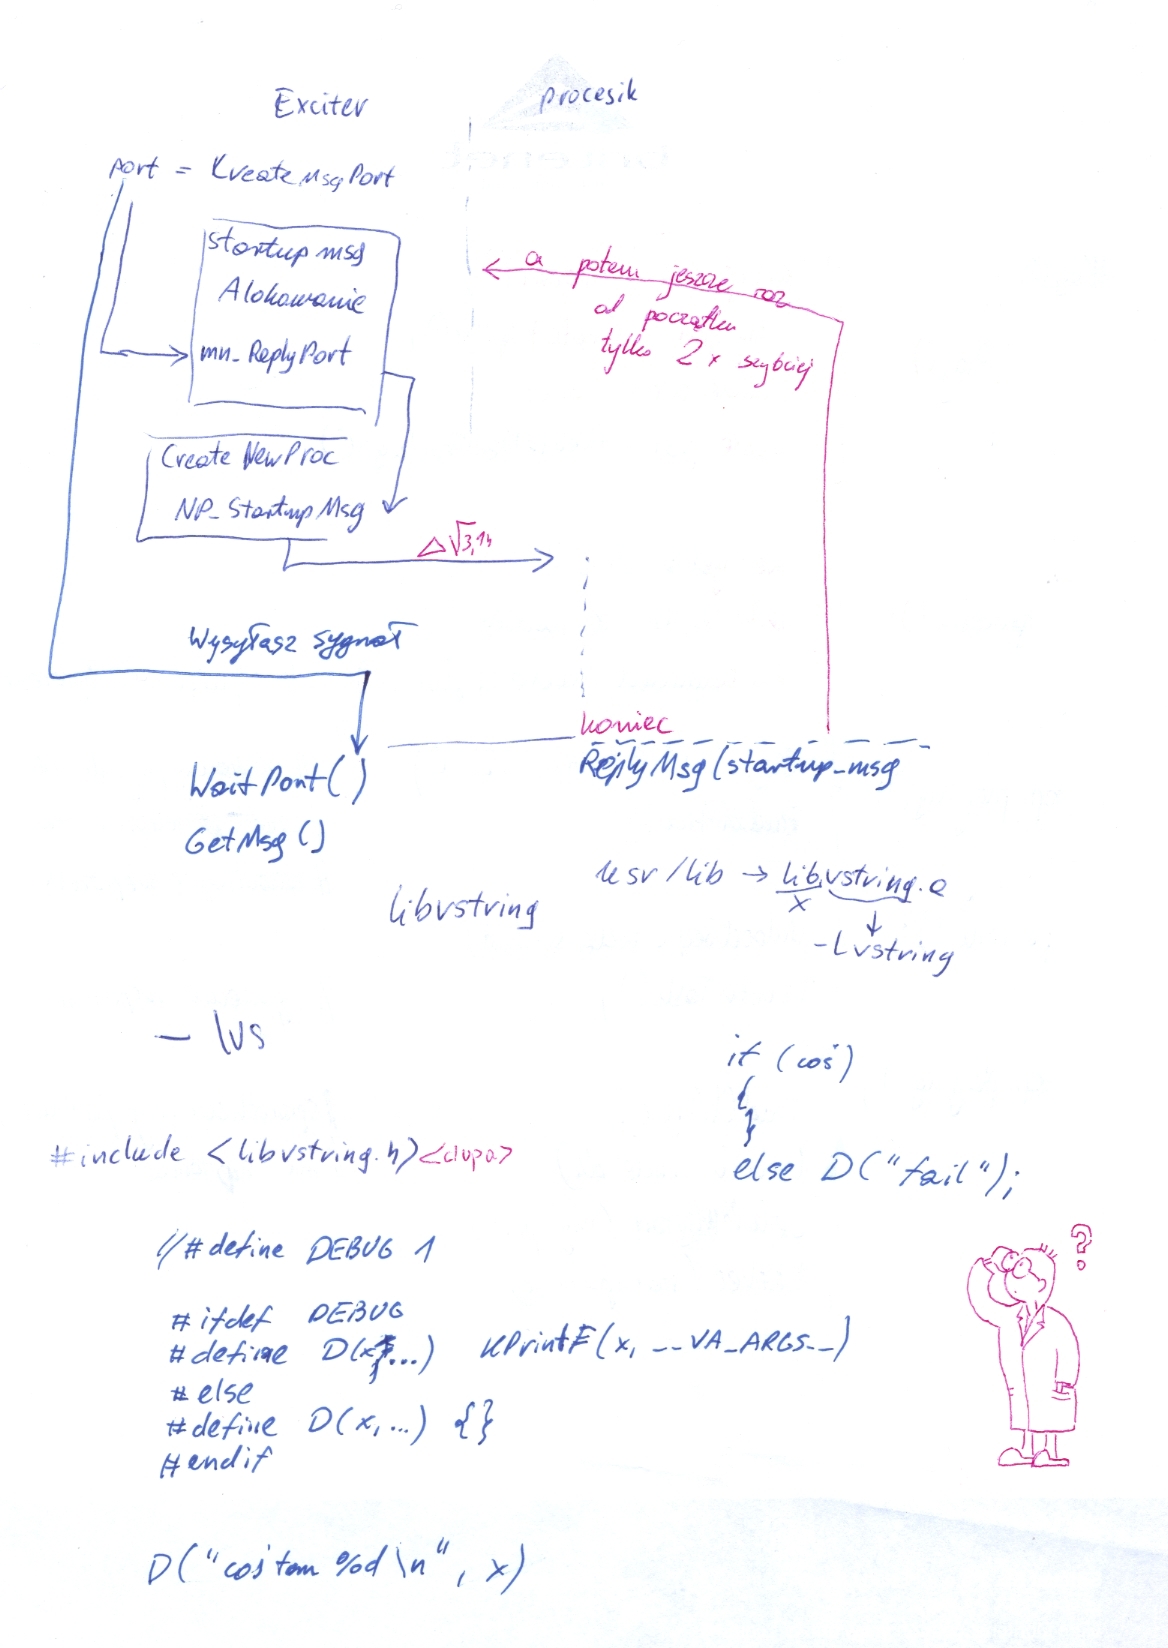 Exciter
procesik
port = CreateMsgPort
startup msg
Alokowanie
mn_ReplyPort
a potem jeszcze raz
od początku
tylko 2 x szybciej
Create NewProc
NP_StartupMsg
△√3,14
Wysyłasz sygnał
koniec
ReplyMsg(startup_msg
WaitPort()
GetMsg()
usr/lib → libvstring.a
x
-lvstring
libvstring
- lvs
if (coś)
{
}
else D("fail");
#include <libvstring.h><dupa>
//#define DEBUG 1
#ifdef DEBUG
#define D(x,...) KPrintF(x, __VA_ARGS__)
#else
#define D(x,...) {}
#endif
?
D("coś tam %d\n", x)